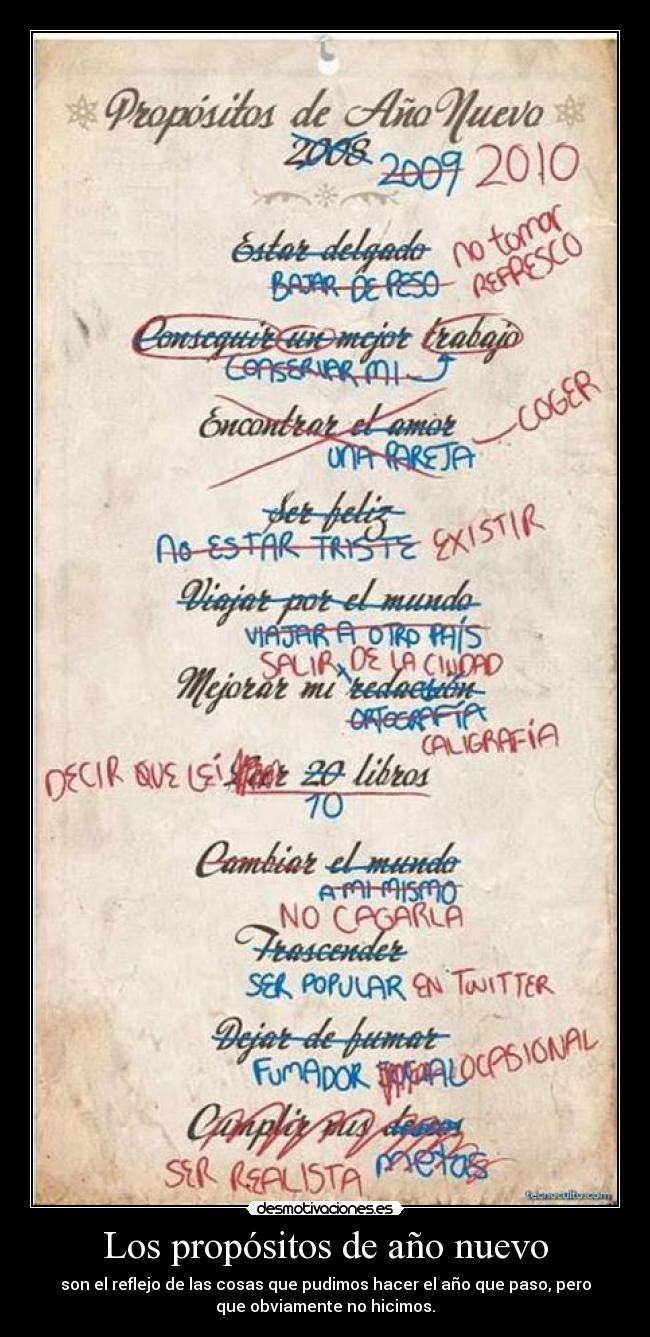 Propósitos de Año Nuevo
2008 2009 2010
Estar delgado
BAJAR DE PESO
no tomar
REFRESCO
Conseguir un mejor trabajo
CONSERVAR MI
Encontrar el amor
UNA PAREJA
COGER
Ser feliz
NO ESTAR TRISTE EXISTIR
Viajar por el mundo
VIAJAR A OTRO PAÍS
SALIR DE LA CIUDAD
Mejorar mi redacción
ORTOGRAFÍA
CALIGRAFÍA
DECIR QUE LEÍ Leer 20 libros
10
Cambiar el mundo
A MI MISMO
NO CAGARLA
Trascender
SER POPULAR EN TWITTER
Dejar de fumar
FUMADOR OCASIONAL
Cumplir mis deseos
metas
SER REALISTA
tecnoculto.com
desmotivaciones.es
Los propósitos de año nuevo
son el reflejo de las cosas que pudimos hacer el año que paso, pero
que obviamente no hicimos.